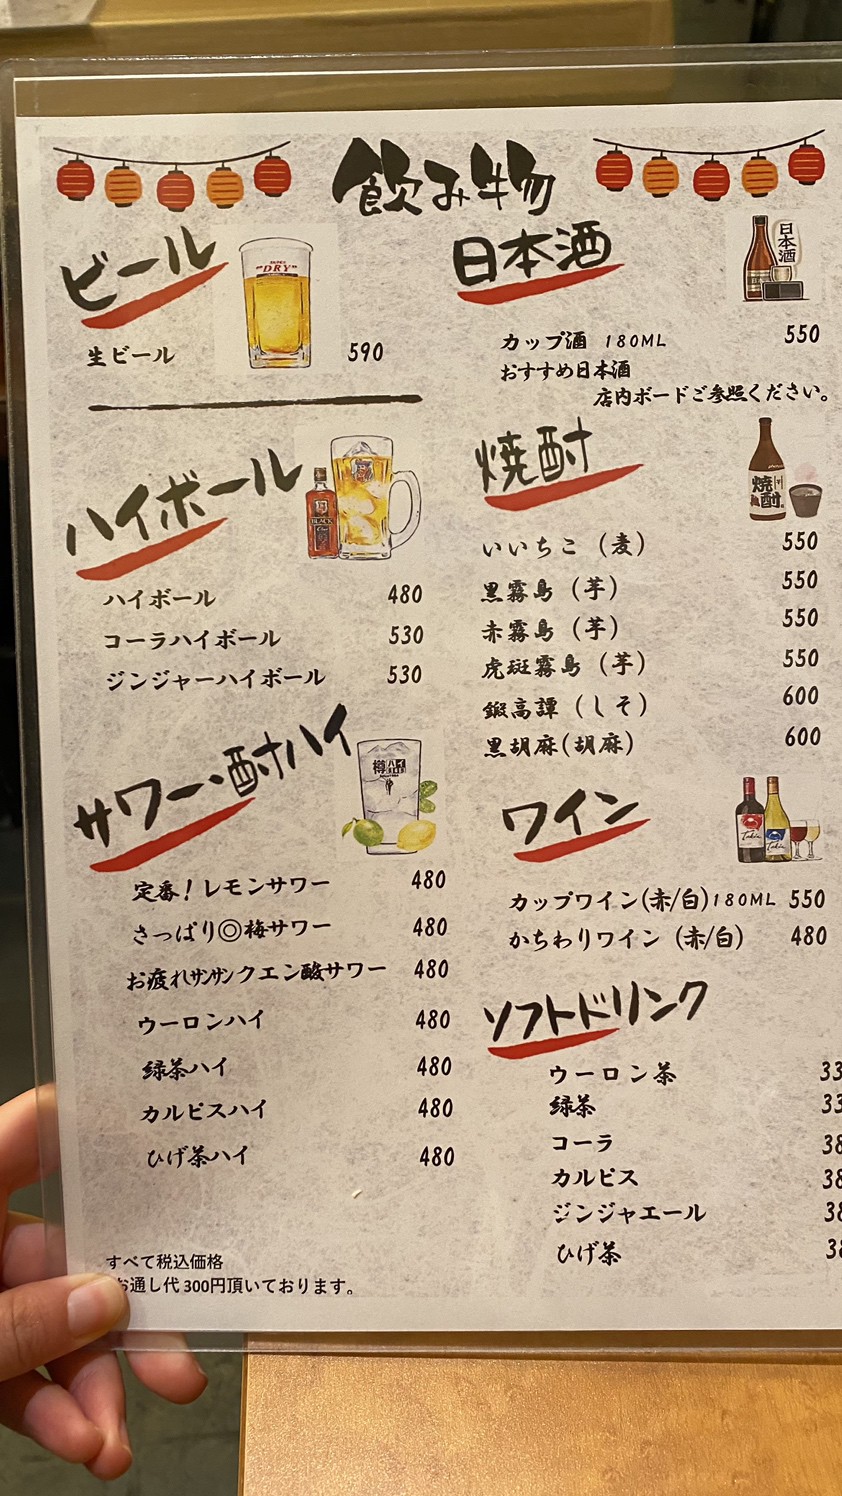 飲み物
ビール
生ビール 590
ハイボール
ハイボール 480
コーラハイボール 530
ジンジャーハイボール 530
サワー・酎ハイ
定番！レモンサワー 480
さっぱり◎梅サワー 480
お疲れサンサンクエン酸サワー 480
ウーロンハイ 480
緑茶ハイ 480
カルピスハイ 480
ひげ茶ハイ 480
すべて税込価格
お通し代 300円頂いております。
日本酒
日本酒
カップ酒 180ML 550
おすすめ日本酒
店内ボードご参照ください。
焼酎
焼酎
いいちこ（麦） 550
黒霧島（芋） 550
赤霧島（芋） 550
虎斑霧島（芋） 550
鍛高譚（しそ） 600
黒胡麻(胡麻) 600
ワイン
カップワイン(赤/白)180ML 550
かちわりワイン（赤/白） 480
ソフトドリンク
ウーロン茶 33
緑茶 33
コーラ 38
カルピス 38
ジンジャエール 38
ひげ茶 38
"DRY"
BLACK
樽ハイ